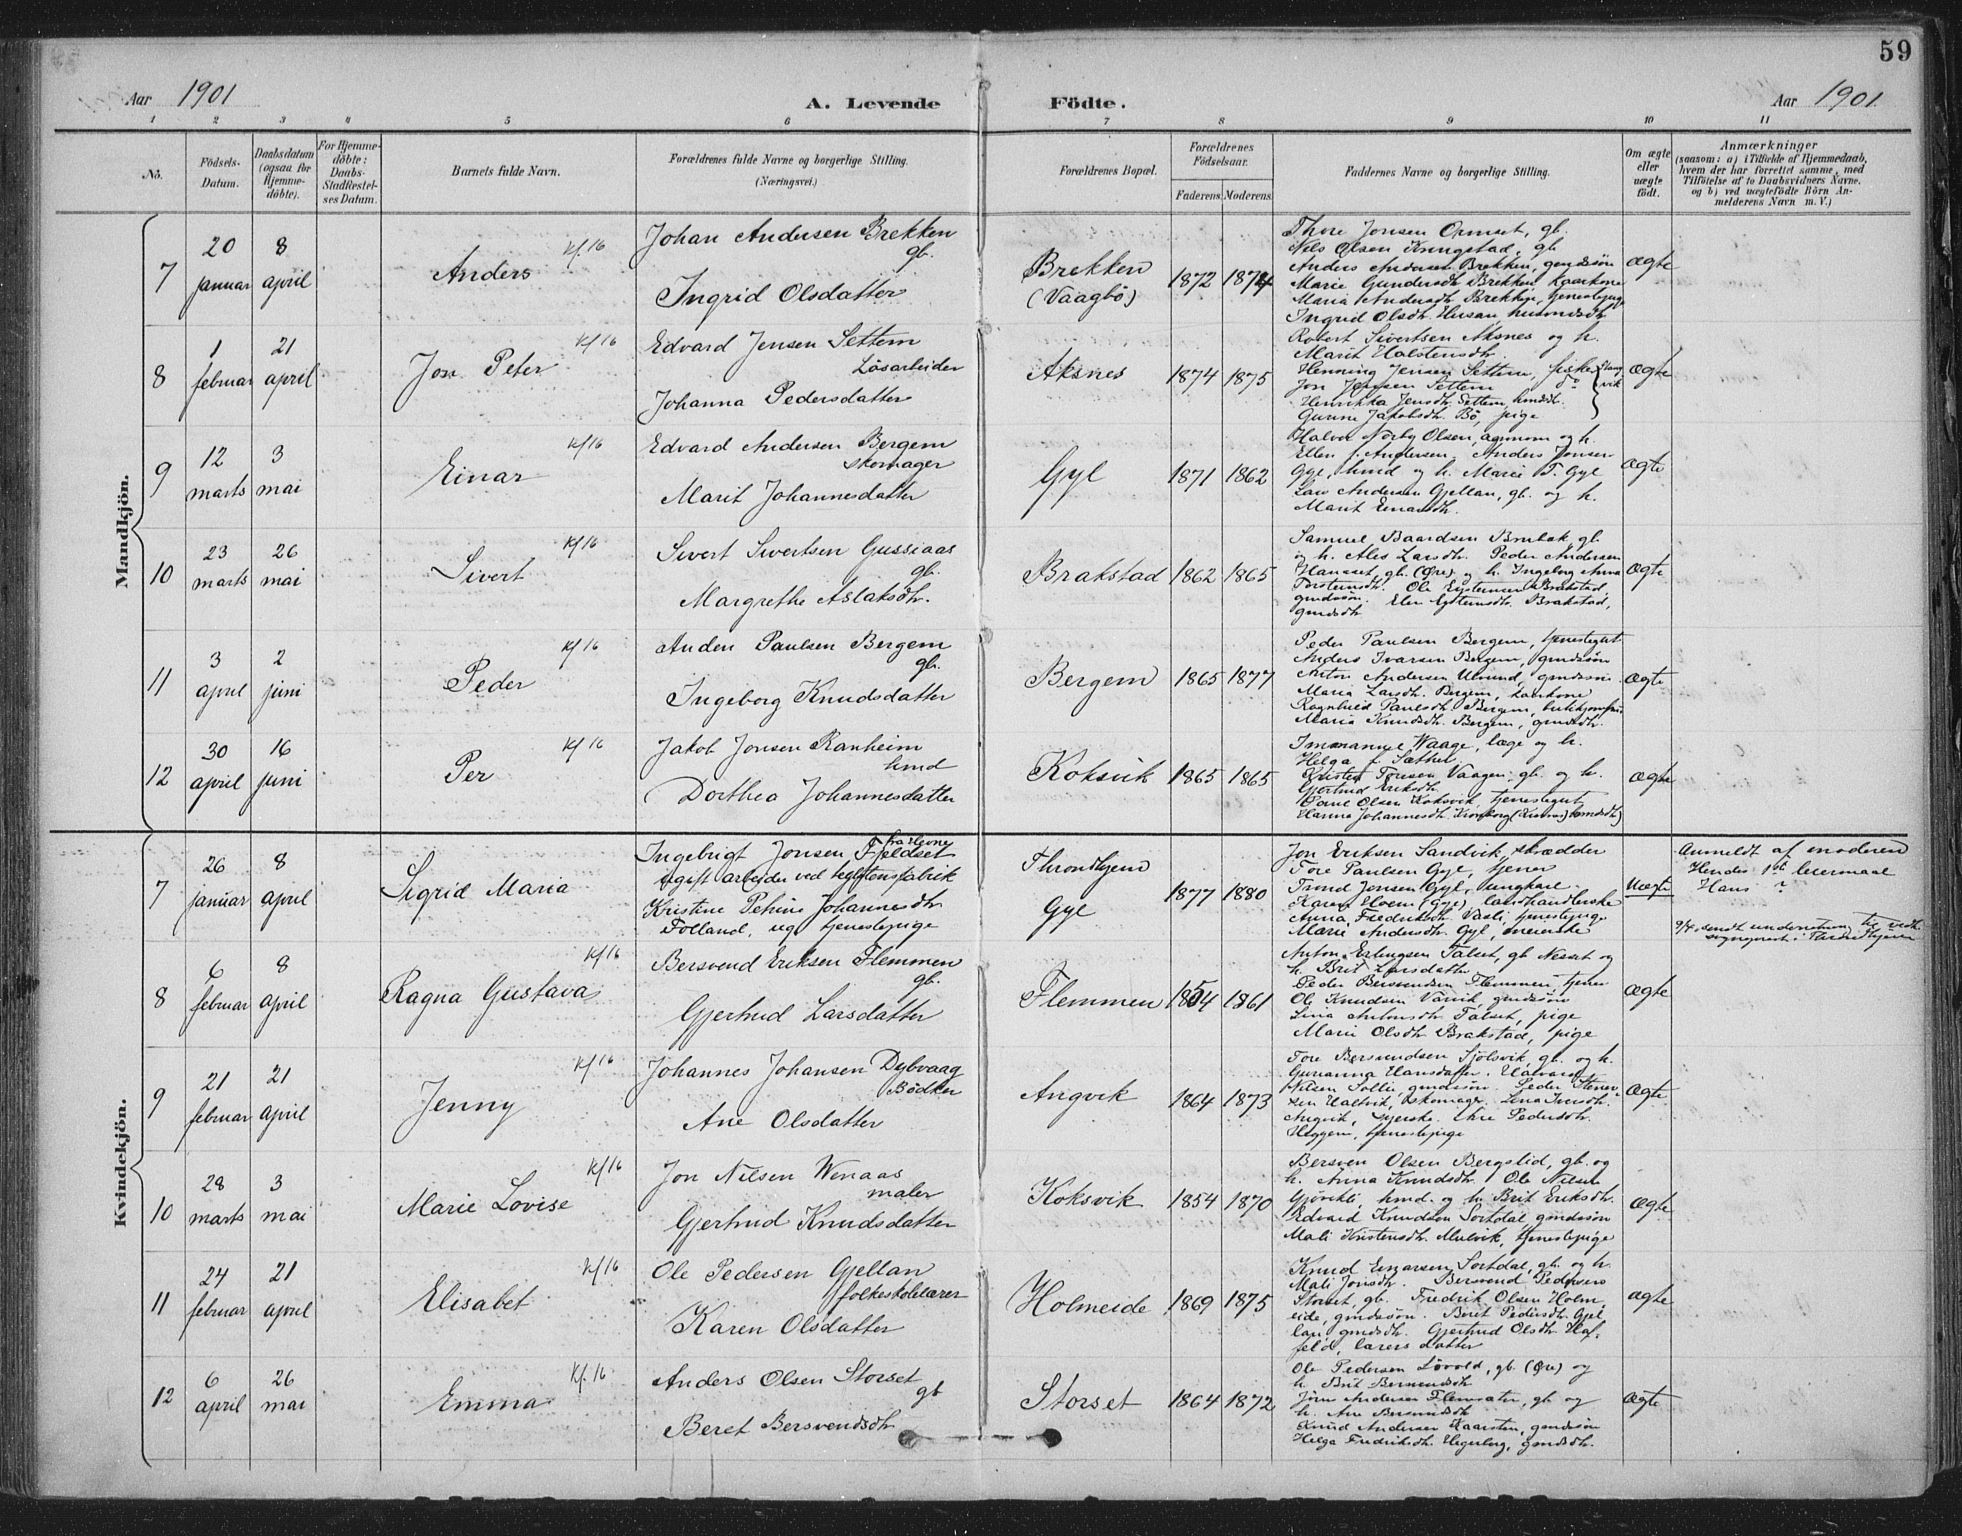 59
Aar 1901
A. Levende Födte.
Aar 1901.
1 2 3 4 5 6 7 8 9 10 11
No.
Födsels-Datum.
Daabsdatum (ogsaa for Hjemmedöbte).
For Hjemmedöbte: Daabs-Stadfæstelses Datum.
Barnets fulde Navn.
Forældrenes fulde Navne og borgerlige Stilling.
(Næringsvei.)
Forældrenes Bopæl.
Forældrenes Födselsaar.
Faderens. Moderens.
Faddernes Navne og borgerlige Stilling.
Om ægte eller uægte födt.
Anmærkninger
(saasom: a) i Tilfælde af Hjemmedaab,
hvem der har forrettet samme, med
Tilföielse af to Daabsvidners Navne,
og b) ved uægtefödte Börn An-
melderens Navn m. V.)
Mandkjön.
7
20 januar
8 april
Anders
Kf. 16
Johan Andersen Brekken
gb.
Ingrid Olsdatter
Brekken
(Vaagbö)
1872 1874
Thore Jonsen Ormset, gb.
Nils Olsen Kringstad, gb
Anders Andersen Brekken, gmdssön
Marie Gundersdh Brekken kaarkone
Maria Andersdh Brekken, tjenestepige
Ingrid Olsdh. Husan husmdsdh
Ægte
8
1 februar
21 april
Jon Peter
Kf 16
Edvard Jensen Settem
Lösarbeider
Johanna Pedersdatter
Aksnes
1874 1875
Robert Sivertsen Aksnes og h.
Marit Halstensdh.
Henning Jensen Settem, fisker
Jon Jensen Settem do
Henrikka Jensdh. Settem, hmdsdh.
Gurine Jakobsdh. Bö, pige
Stangvik
Ægte
9
12 marts
3 mai
Einar
Kf 16
Edvard Andersen Bergem
skomager
Marit Johannesdatter
Gyl
1871 1862
Halvor Norby Olsen, agronom og h.
Ellen f. Andersen. Anders Jonsen
Gyl, hmd og h. Marie T. Gyl
Lars Andersen Gjellan, gb. og h.
Marit Einarsdh.
Ægte
10
23 marts
26 mai
Sivert
Kf 16
Sivert Sivertsen Gussiaas
gb.
Margrethe Aslaksdh.
Brakstad
1862 1865
Samuel Baardsen Brubak, gb.
og h. Ales Larsdh. Peder Andersen
Hanset, gb. (Øre) og h. Ingeborg Anna
Torsteinsdh. Ole Eysteinsen Brakstad,
gmdssön. Elen Eysteinsdh. Brakstad,
gmdsdh
Ægte
11
3 april
2 juni
Peder
Kf 16
Anders Paulsen Bergem
gb.
Ingeborg Knudsdatter
Bergem
1865 1877
Peder Paulsen Bergem, tjenestegut
Anders Ivarsen Bergem, gmdssön
Anton Andersen Ulvund, gmdssön
Maria Larsdh. Bergem, kaarkone
Ragnhild Paulsdh. Bergem, butikjomfru
Maria Knudsdh. Bergem, gmdsdh.
Ægte
12
30 april
16 juni
Per
Kf 16
Jakob Jonsen Ranheim
hmd
Dorthea Johannesdatter
Koksvik
1865 1865
Immanuel Waage, læge og h.
Helga f. Sæther
Kristen Toresen Vaagen, gb. og h.
Gjertrud Eriksdh.
Paul Olsen Koksvik, tjenestegut
Hanna Johannesdh. Kronborg (Kvernes) hmdsdh)
Ægte
Kvindekjön.
7
26 januar
8 april
Sigrid Maria
Ingebrigt Jonsen Fjeldset
fra Hevne
ugift arbeider ved teglstensfabrik
Kristine Petrine Johannesdh
Folland, ug. tjenestepige
Throndhjem
Gyl
1877 1880
Jon Eriksen Sandvik, skrædder
Tore Paulsen Gyl, tjener
Trond Jonsen Gyl, ungkarl.
Karen Hoem (Gyl) landhandlerske
Anna Fredriksdh. Vasli, tjenestepige
Marie Andersdh. Gyl, meierske
Uægte
Anmeldt af moderen
Hendes 1ste leiermaal
Hans ?
9/4 sendt underretning til vedk.
sogneprest i Throndhjem
8
6 februar
8 april
Ragna Gustava
Kf 16
Bersvend Eriksen Flemmen
gb.
Gjertrud Larsdatter
Flemmen
1854 1861
Anton Erlingsen Talset, gb Nesset og
h. Brit Larsdatter
Peder Bersvendsen Flemmen, tjener
Ole Knudsen Varvik, gmdssön
Lina Antonsdh Talset, pige
Marie Olsdh Brakstad, pige
Ægte
9
21 februar
21 april
Jenny
Kf 16
Johannes Johansen Dybvaag
Bödker
Ane Olsdatter
Angvik
1864 1873
Tore Bersvendsen Sjölsvik, gb. og h.
Gurianna Hansdatter. Halvard
Nilsen Sollie gmdssön. Peder Stener-
sen Haltvik, skomager. Lina Iversdh.
Angvik, syerske. Ane Pedersdh.
Heggem, tjenestepige
Ægte
10
28 marts
3 mai
Marie Lovise
Kf 16
Jon Nilsen Wenaas
maler
Gjertrud Knudsdatter
Koksvik
1854 1870
Bersven Olsen Bergslid, gb. og
h. Anna Knudsdh. Ole Nilsen
Gjövikli, hmd. og h. Brit Eriksdh.
Edvard Knudsen Sortdal, gmdssön
Mali Kristensdh. Mulvik, tjenestepige
Ægte
11
24 februar
21 april
Elisabet
Kf 16
Ole Pedersen Gjellan
folkeskolelærer
Karen Olsdatter
Holmeide
1869 1875
Knud Einarsen Sortdal, gb. og h.
Mali Jonsdh. Bersvend Pedersen
Storset, gb. Fredrik Olsen Holm
eide, gmdssön. Berit Pedersdh. Gjel
lan gmdsdh. Gjertrud Olsdh. Haf-
feld, lærers datter
Ægte
12
6 april
26 mai
Emma
Kf. 16
Anders Olsen Storset
gb
Beret Bersvendsdh
Storset
1864 1872
Ole Pedersen Lövold, gb. (Øre) og
h. Brit Bersvendsdh
Jörn Andersen Flemsæter, gb og
h. Ane Bersvendsdh
Knud Andersen Kaarsten, gmdssön
Helga Fredriksdh. Hegerberg, gmdsdh.
Ægte